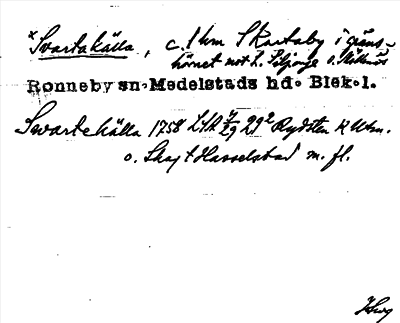 × Svartakälla, c. 1 km S Kartaby i gräns-
hörnet mot L. Siljinge o.
Ronneby sn. Medelstads hd. Blek. l.
Svartekälla 1758 LSA 29 29² Rydsten K Utm.
o. Skog t Hasselstad m. fl.